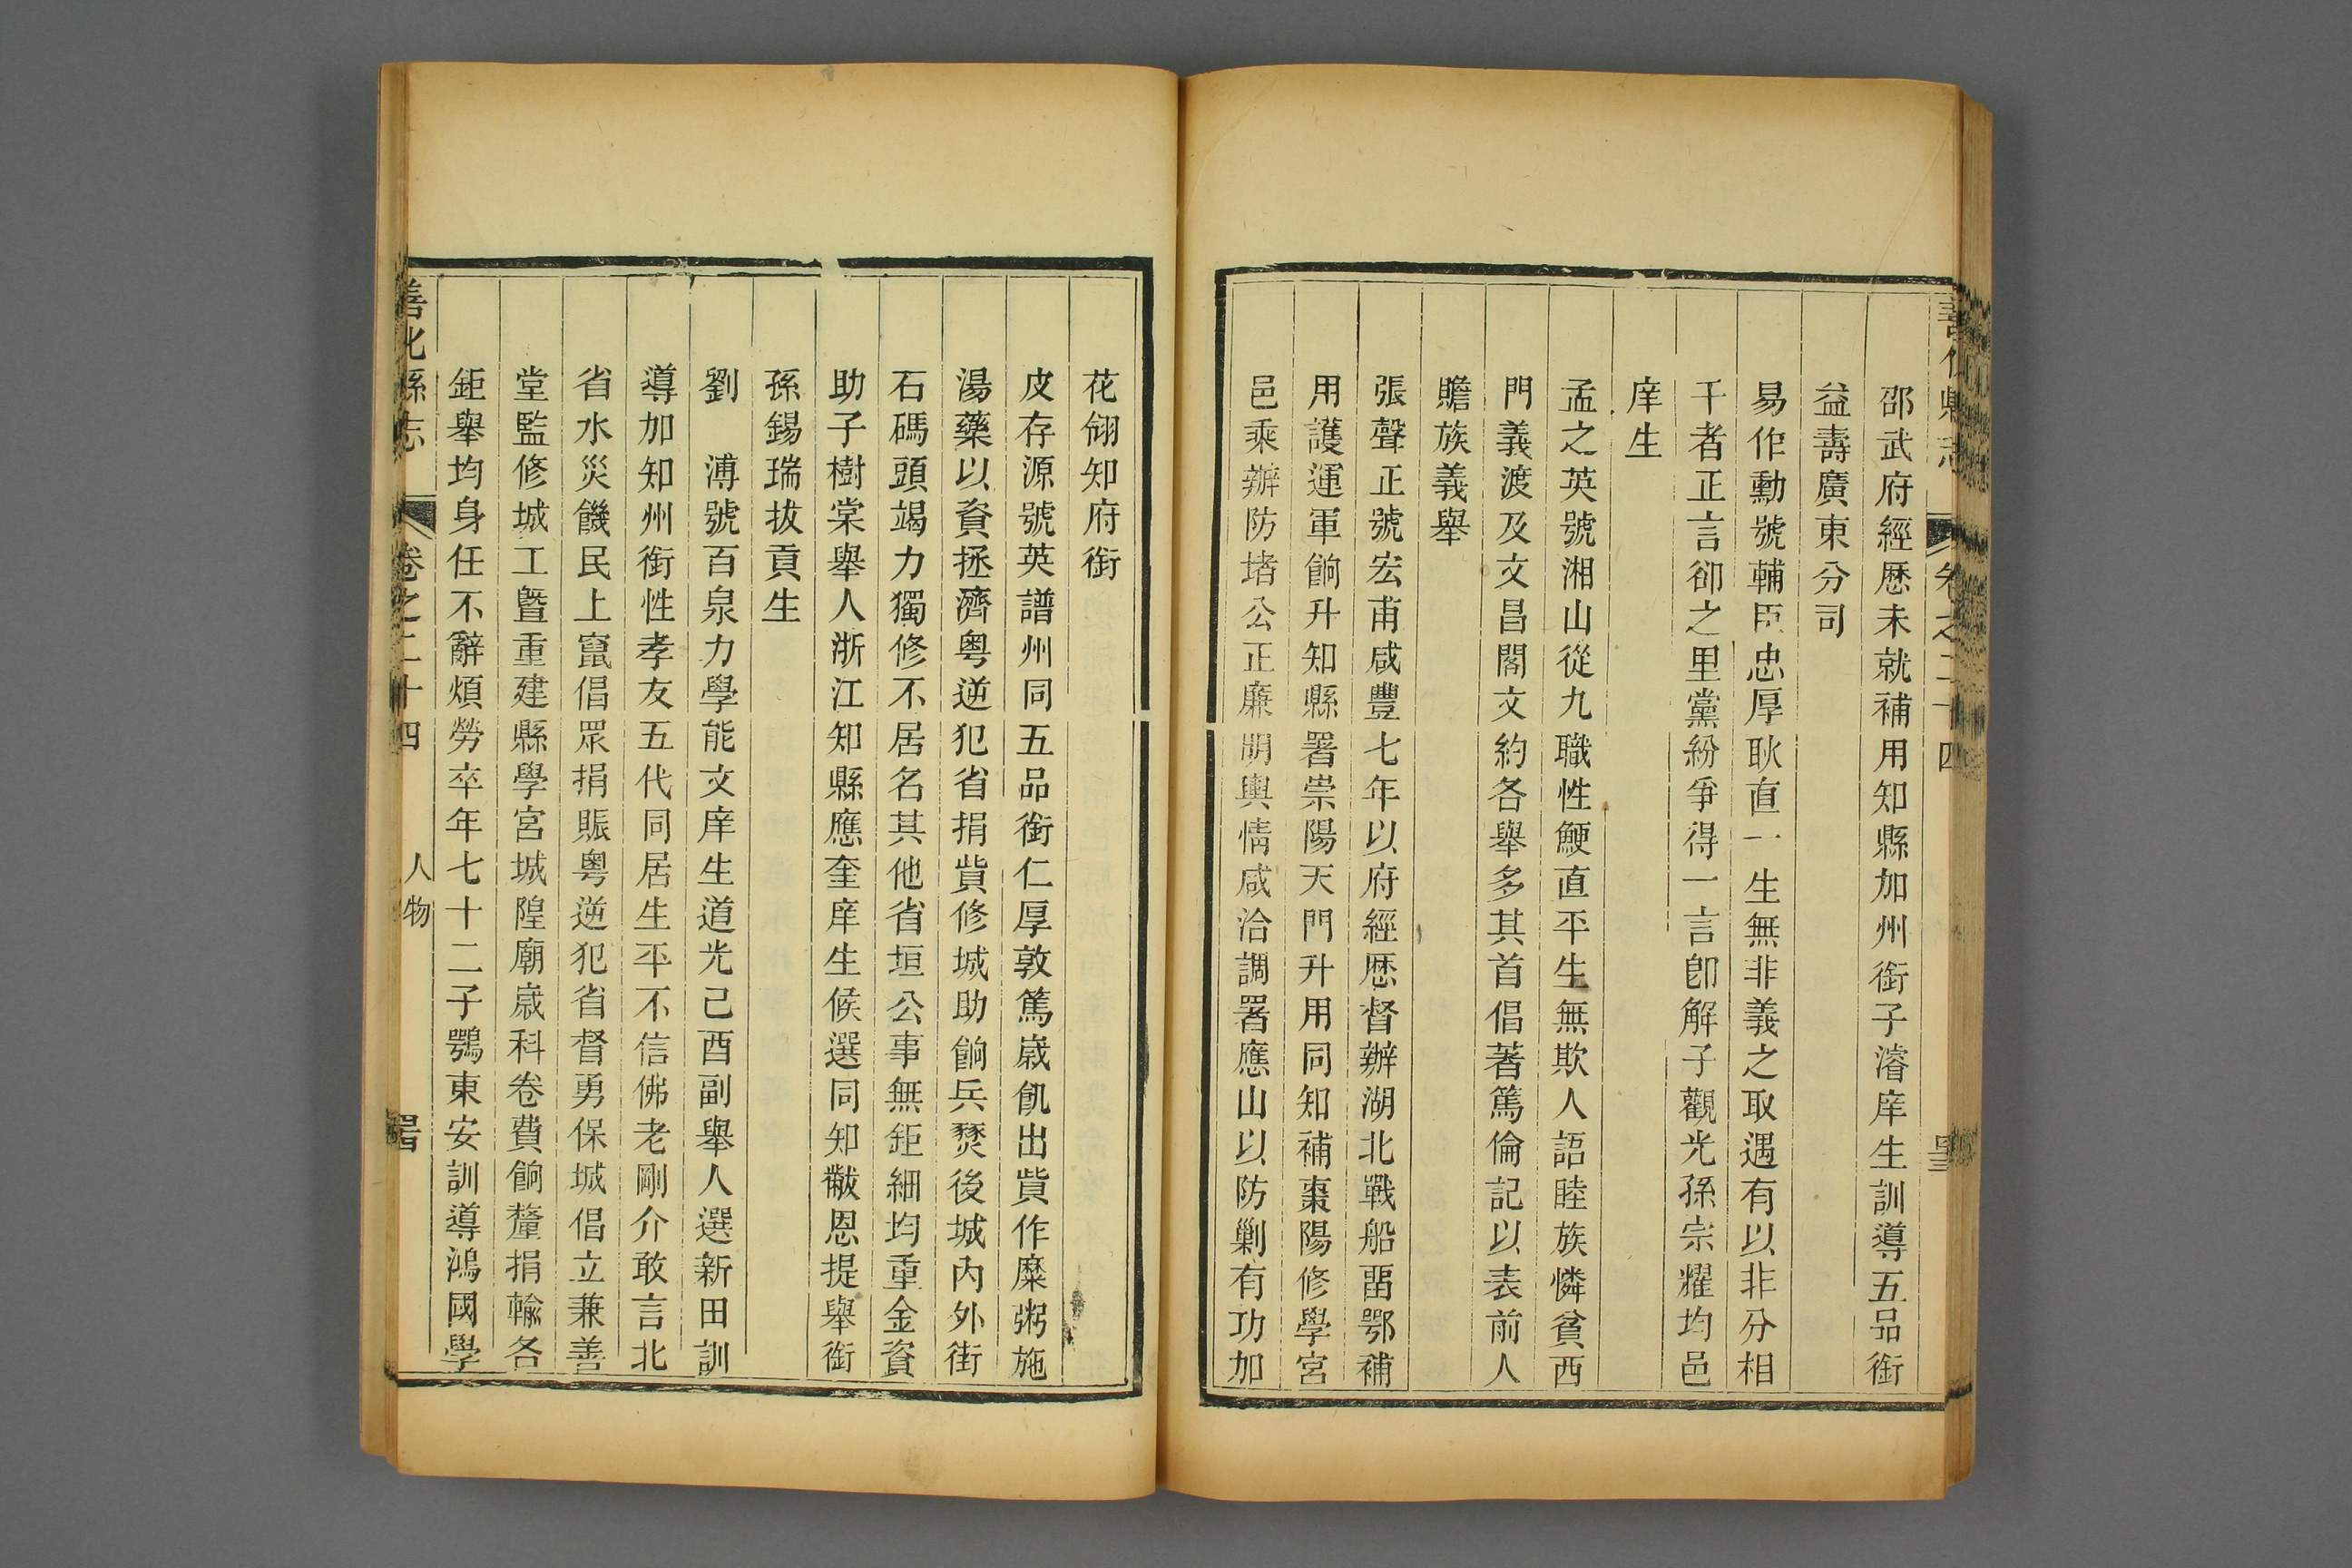 善化縣志 卷之二十四
邵武府經歷未就補用知縣加州銜子濬庠生訓導五品銜
益壽廣東分司
易作勳號輔臣忠厚耿直一生無非義之取遇有以非分相
干者正言卻之里黨紛爭得一言卽解子觀光孫宗耀均邑
庠生
孟之英號湘山從九職性鯁直平生無欺人語睦族憐貧西
門義渡及文昌閣文約各舉多其首倡著篤倫記以表前人
贍族義舉
張聲正號宏甫咸豐七年以府經歷督辦湖北戰船畱鄂補
用護運軍餉升知縣署崇陽天門升用同知補棗陽修學宮
邑乘辦防堵公正廉明輿情咸洽調署應山以防剿有功加
花翎知府銜
皮存源號英譜州同五品銜仁厚敦篤歲飢出貲作糜粥施
湯藥以資拯濟粵逆犯省捐貲修城助餉兵燹後城內外街
石碼頭竭力獨修不居名其他省垣公事無鉅細均重金資
助子樹棠舉人浙江知縣應奎庠生候選同知黻恩提舉銜
孫錫瑞拔貢生
劉 溥號百泉力學能文庠生道光己酉副舉人選新田訓
導加知州銜性孝友五代同居生平不信佛老剛介敢言北
省水災饑民上竄倡眾捐賑粵逆犯省督勇保城倡立兼善
堂監修城工曁重建縣學宮城隍廟歲科卷費餉釐捐輸各
鉅舉均身任不辭煩勞卒年七十二子鶚東安訓導鴻國學
善化縣志 卷之二十四 人物